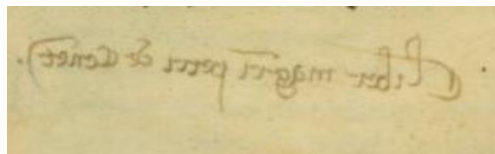 Liber magr̄i petri de Cenet